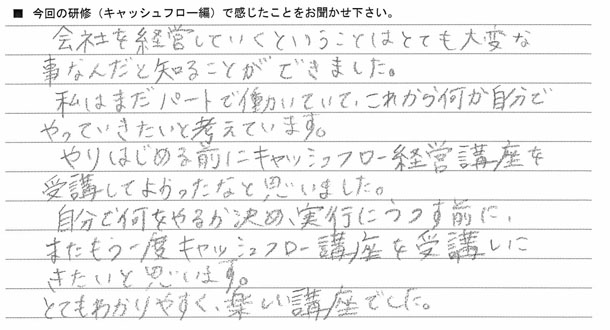 ■ 今回の研修（キャッシュフロー編）で感じたことをお聞かせ下さい。
会社を経営していくということはとても大変な
事なんだと知ることができました。
私はまだパートで働いていて、これから何か自分で
やっていきたいと考えています。
やりはじめる前にキャッシュフロー経営講座を
受講してよかったなと思いました。
自分で何をやるか決め、実行にうつす前に、
またもう一度キャッシュフロー講座を受講しに
きたいと思います。
とてもわかりやすく、楽しい講座でした。